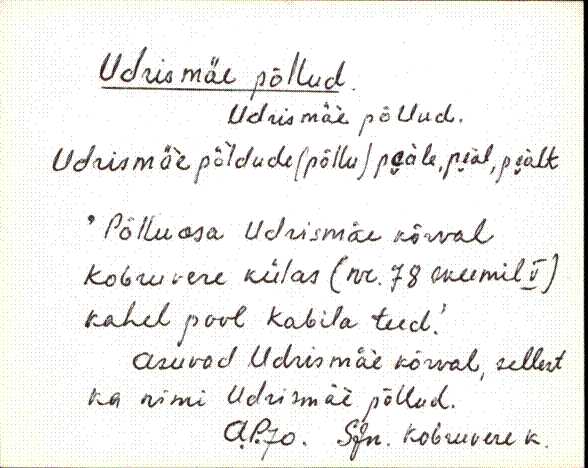 Udrismäe põllud.
Udrismäe põllud.
Udrismäe põldude (põllu) peäle, peäl, peält
' Põlluosa Udrismäe kõrval
Kobruvere külas (nr. 78 skeemil V)
kahel pool Kabila teed.'
Asuvad Udrismäe kõrval, sellest
ka nimi Udrismäe põllud.
A.P.70. Sjn. Kobruvere k.